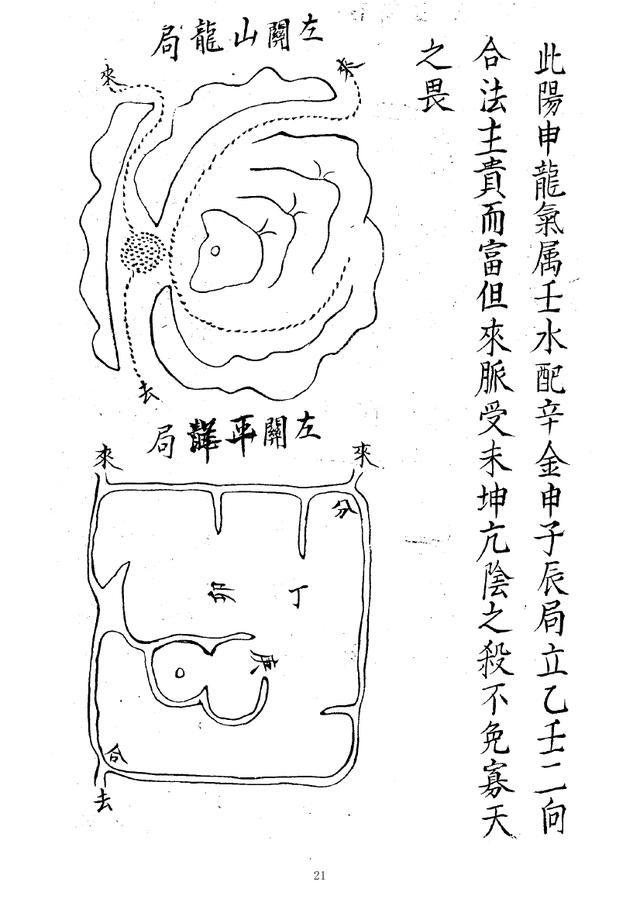 此陽申龍氣属壬水配辛金申子辰局立乙壬二向
合法主貴而富但來脈受未坤亢陰之殺不免寡天
之畏
左關山龍局
來
來
去
左關平局
來
來
分
丁
合
去
21